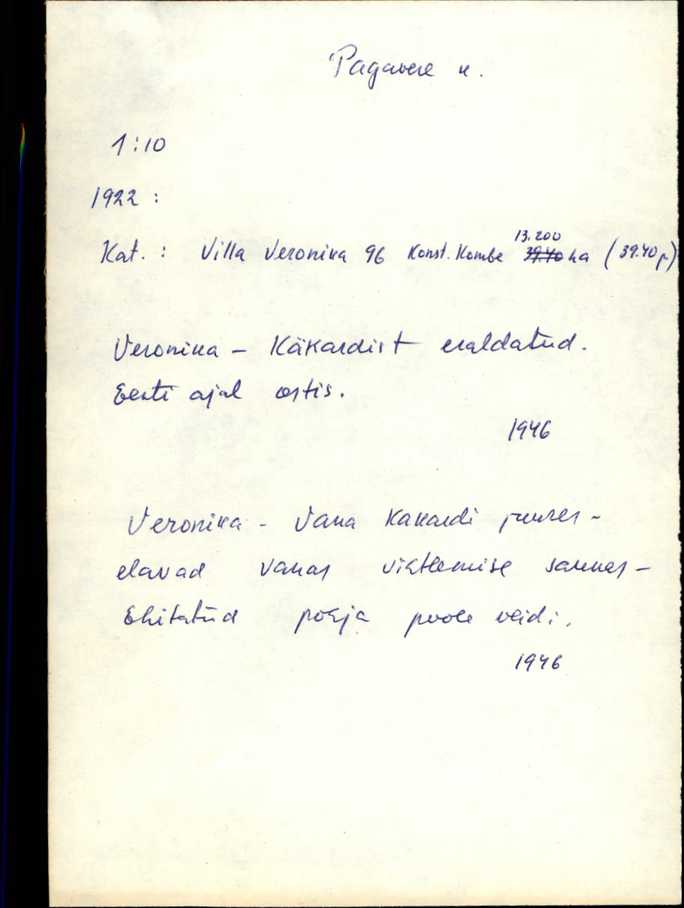 Pagavere k.
1:10
1922 :
Kat. : Villa Veronika 96 Konst. Kombe 13.200 39.40 ha (39.40 p)
Veronika – Käkardist eraldatud.
Eesti ajal ostis.
1946
Veronika - Vana Kakardi juures -
elavad vanas viktlemise saunas -
Ehitatud põhja poole veidi.
1946